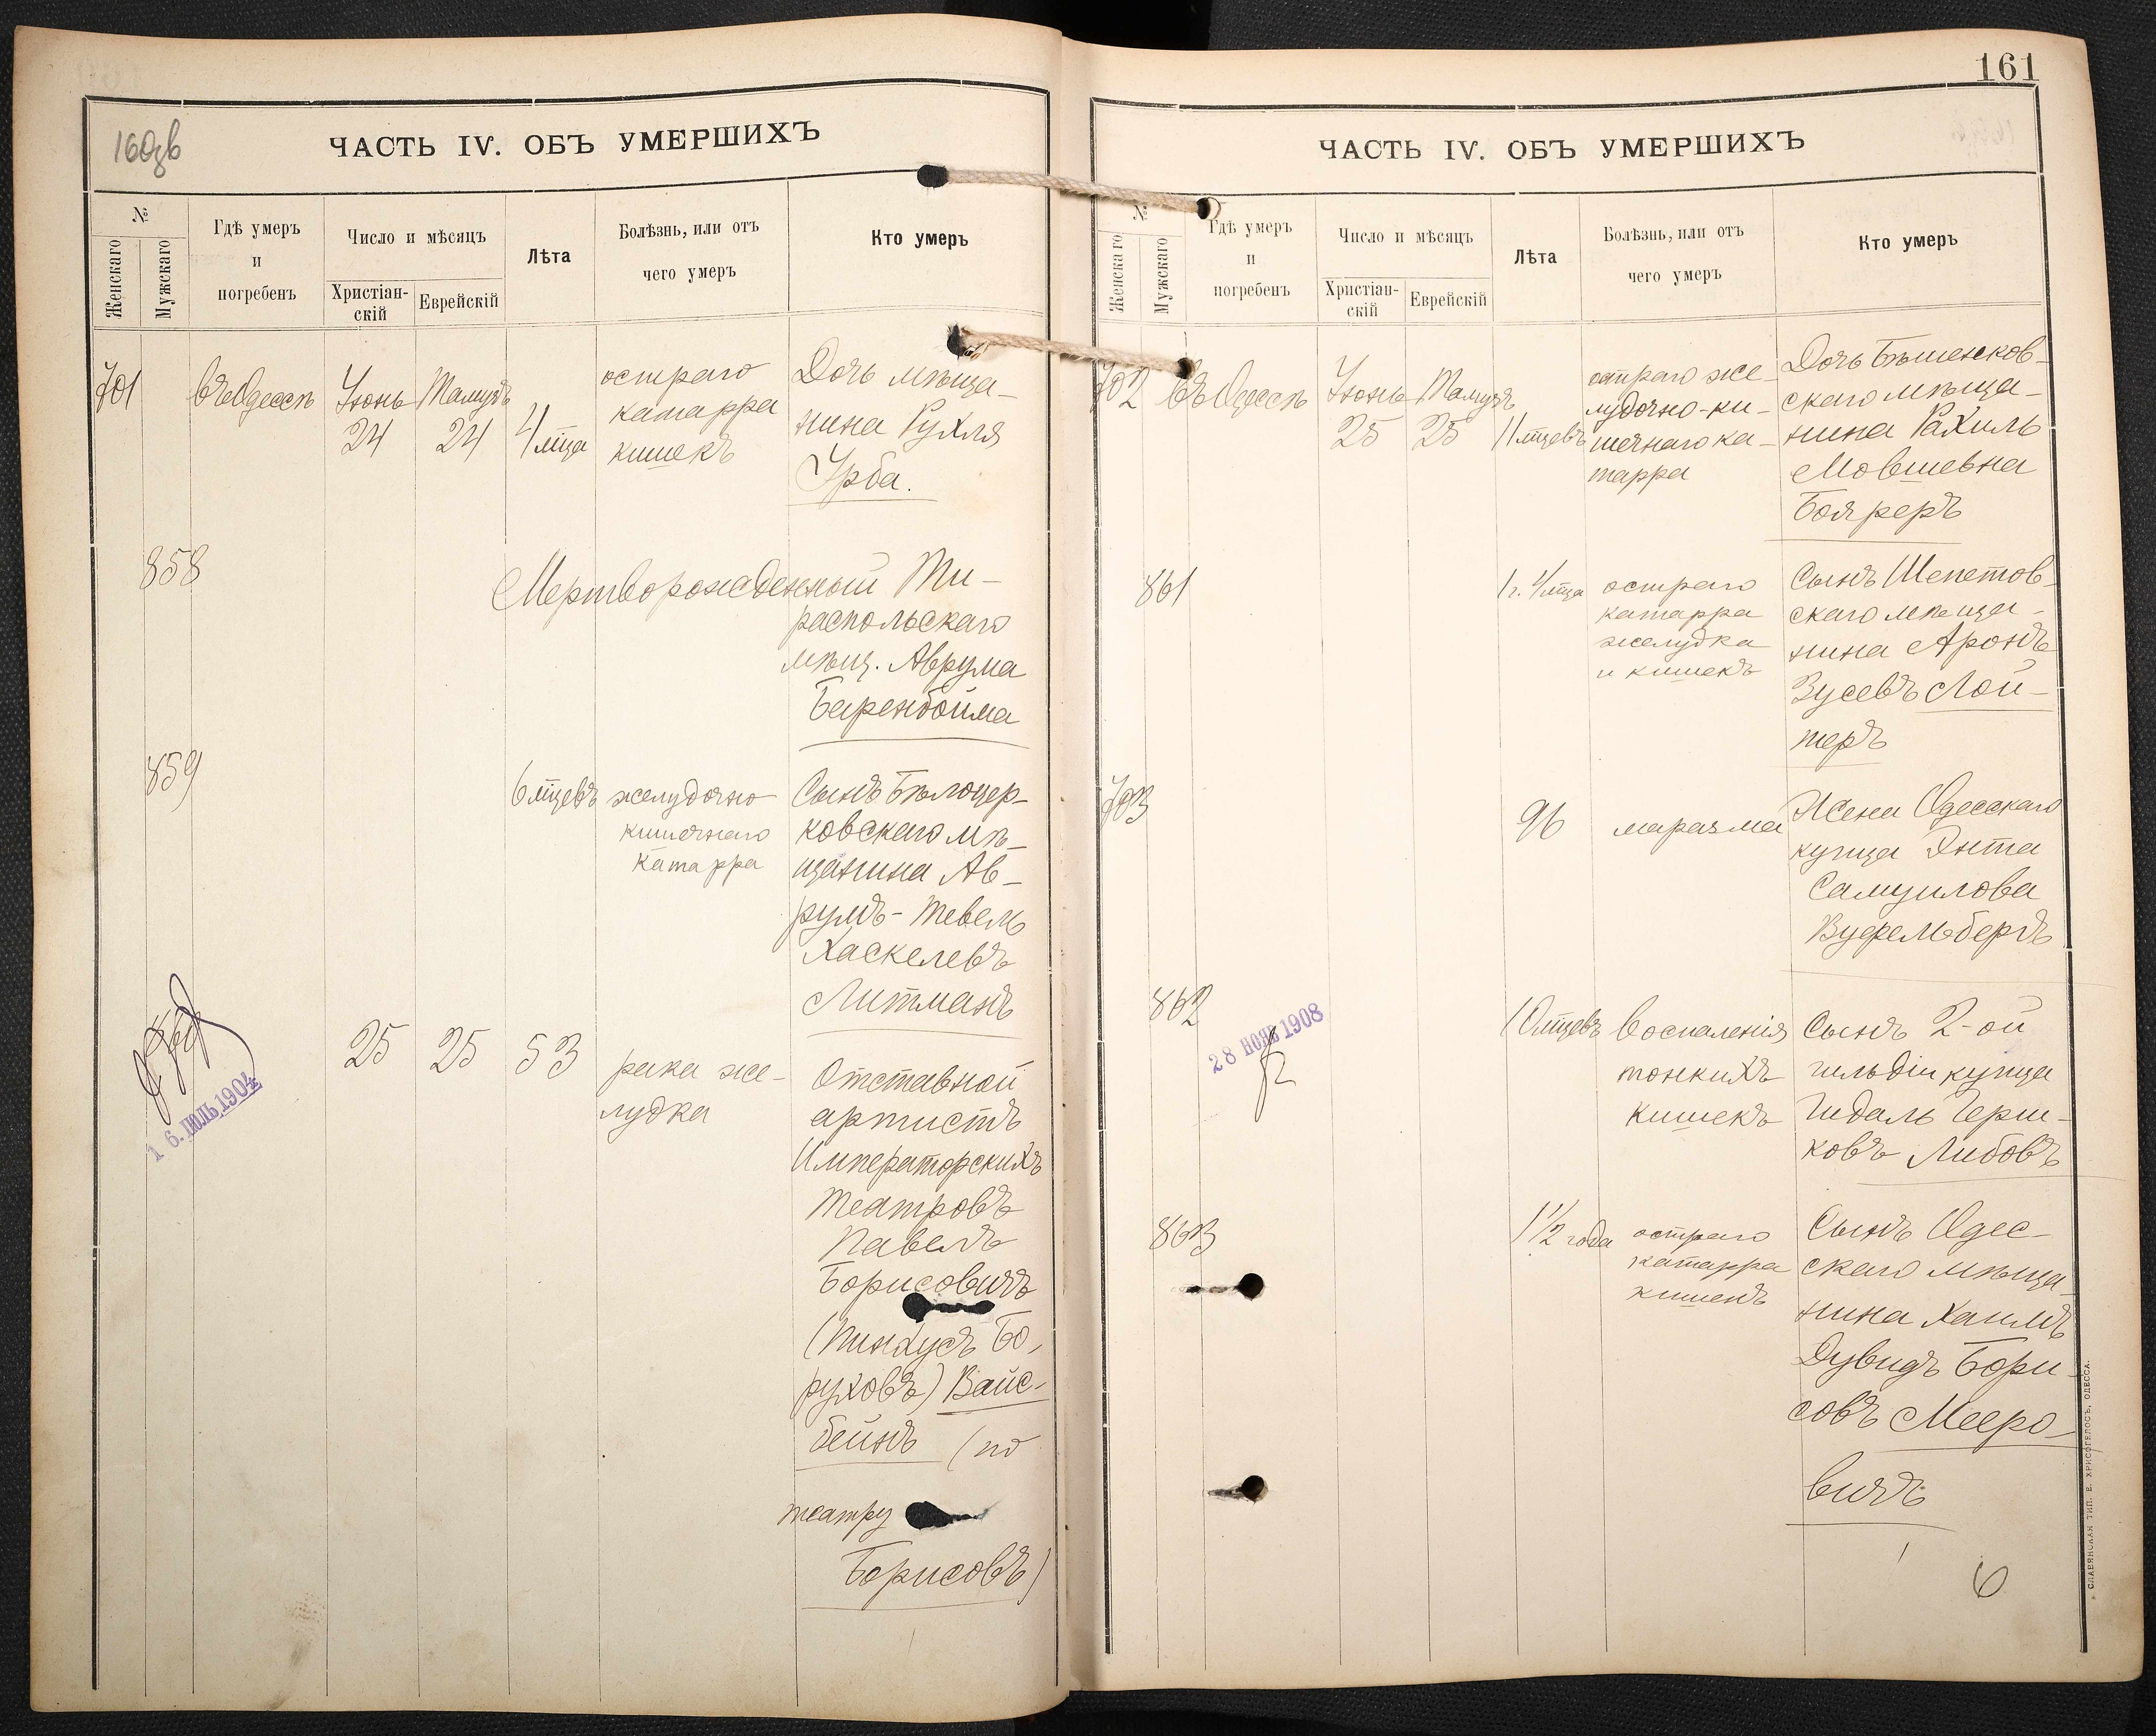 160зв
ЧАСТЬ IV. ОБЪ УМЕРШИХЪ
№
Женскаго
Мужскаго
Гдѣ умеръ
и
погребенъ
Число и мѣсяцъ
Христіан-
скій
Еврейскій
Лѣта
Болѣзнь, или отъ
чего умеръ
Кто умеръ
701 въ Одессѣ Іюнь 24 Тамузъ 24 4 мца
остраго
катарра
кишекъ
Дочь мѣща-
нина Рухля
Урба.
858
Мертворожденный Ти-
распольскаго
мѣщ. Аврума
Баренбойма
859
6 мцевъ
желудочно
кишечнаго
катарра
Сынъ Бѣлоцер-
ковскаго мѣ-
щанина Ав-
румъ-Тевель
Хаскелевъ
Литманъ
860
16. ІЮЛЬ.1904
25 25 53
рака же-
лудка
Отставной
артистъ
Императорскихъ
театровъ
Павелъ
Борисовичъ
(Пинхусъ Бо,
руховъ) Вайс-
бейнъ (по
театру
Борисовъ)
161
ЧАСТЬ IV. ОБЪ УМЕРШИХЪ
№
Женскаго
Мужскаго
Гдѣ умеръ
и
погребенъ
Число и мѣсяцъ
Христіан-
скій
Еврейскій
Лѣта
Болѣзнь, или отъ
чего умеръ
Кто умеръ
702 въ Одессѣ Іюнь 25 Тамузъ 25 11 мцевъ
остраго же-
лудочно-ки-
шечнаго ка-
тарра
Дочь Бѣшенков-
скаго мѣща-
нина Рахиль
Мовшевна
Бояреръ
861
1 г. 4 мца
остраго
катарра
желудка
и кишекъ
Сынъ Шепетов-
скаго мѣща-
нина Аронъ
Зусевъ Лой-
теръ
703
96
маразма
Жена Одесскаго
купца Энта
Самуилова
Вуфельбергъ
862
28 НОЯБ 1908
10 мцевъ
воспаленія
тонкихъ
кишекъ
Сынъ 2-ой
гильдіи купца
Гидаль Герш-
ковъ Либовъ
863
1 1/2 года
остраго
катарра
кишекъ
Сынъ Одес-
скаго мѣща-
нина Хаимъ
Дувидъ Бори-
совъ Мееро-
вичъ
6
СЛАВЯНСКАЯ ТИП. Е. ХРИСОГЕЛОСЪ, ОДЕССА.